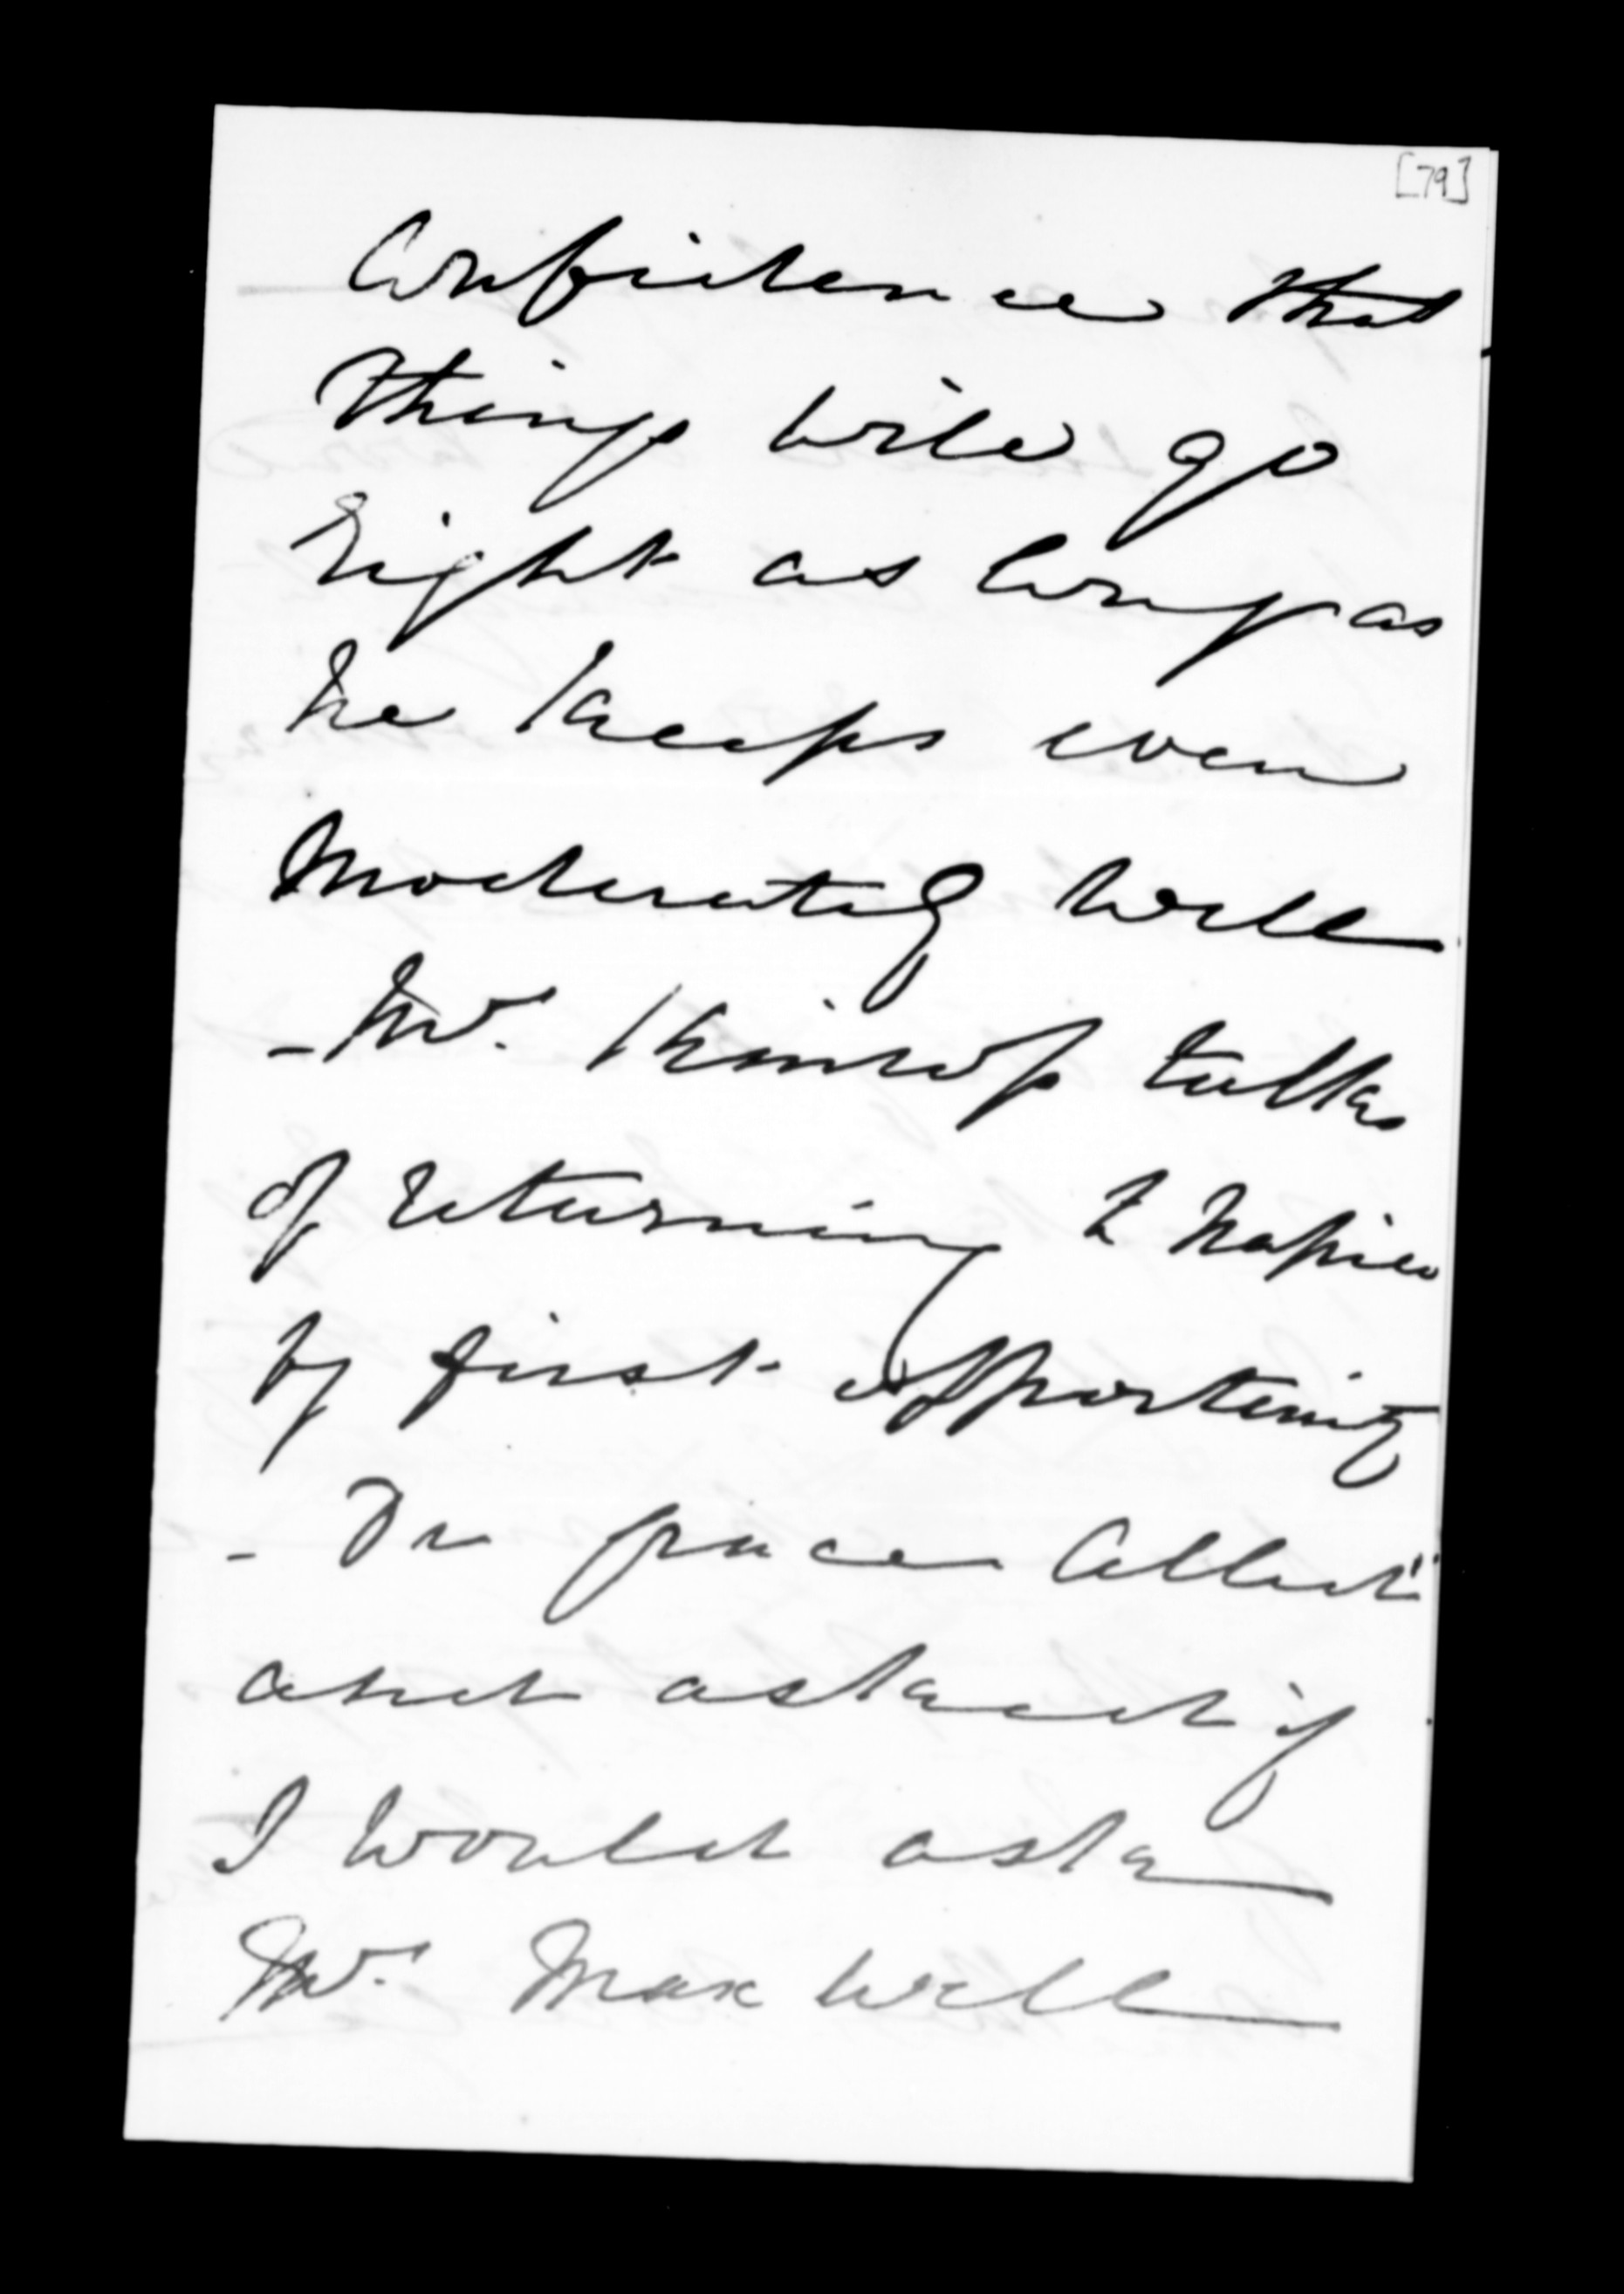 [79]
Confidence that
things will go
right as long as
he keeps even
moderately well
- Mr. Kinross talks
of returning to Napier
by first opportunity
- Dr Grace Called
and asked if
I would ask
Mr. Maxwell